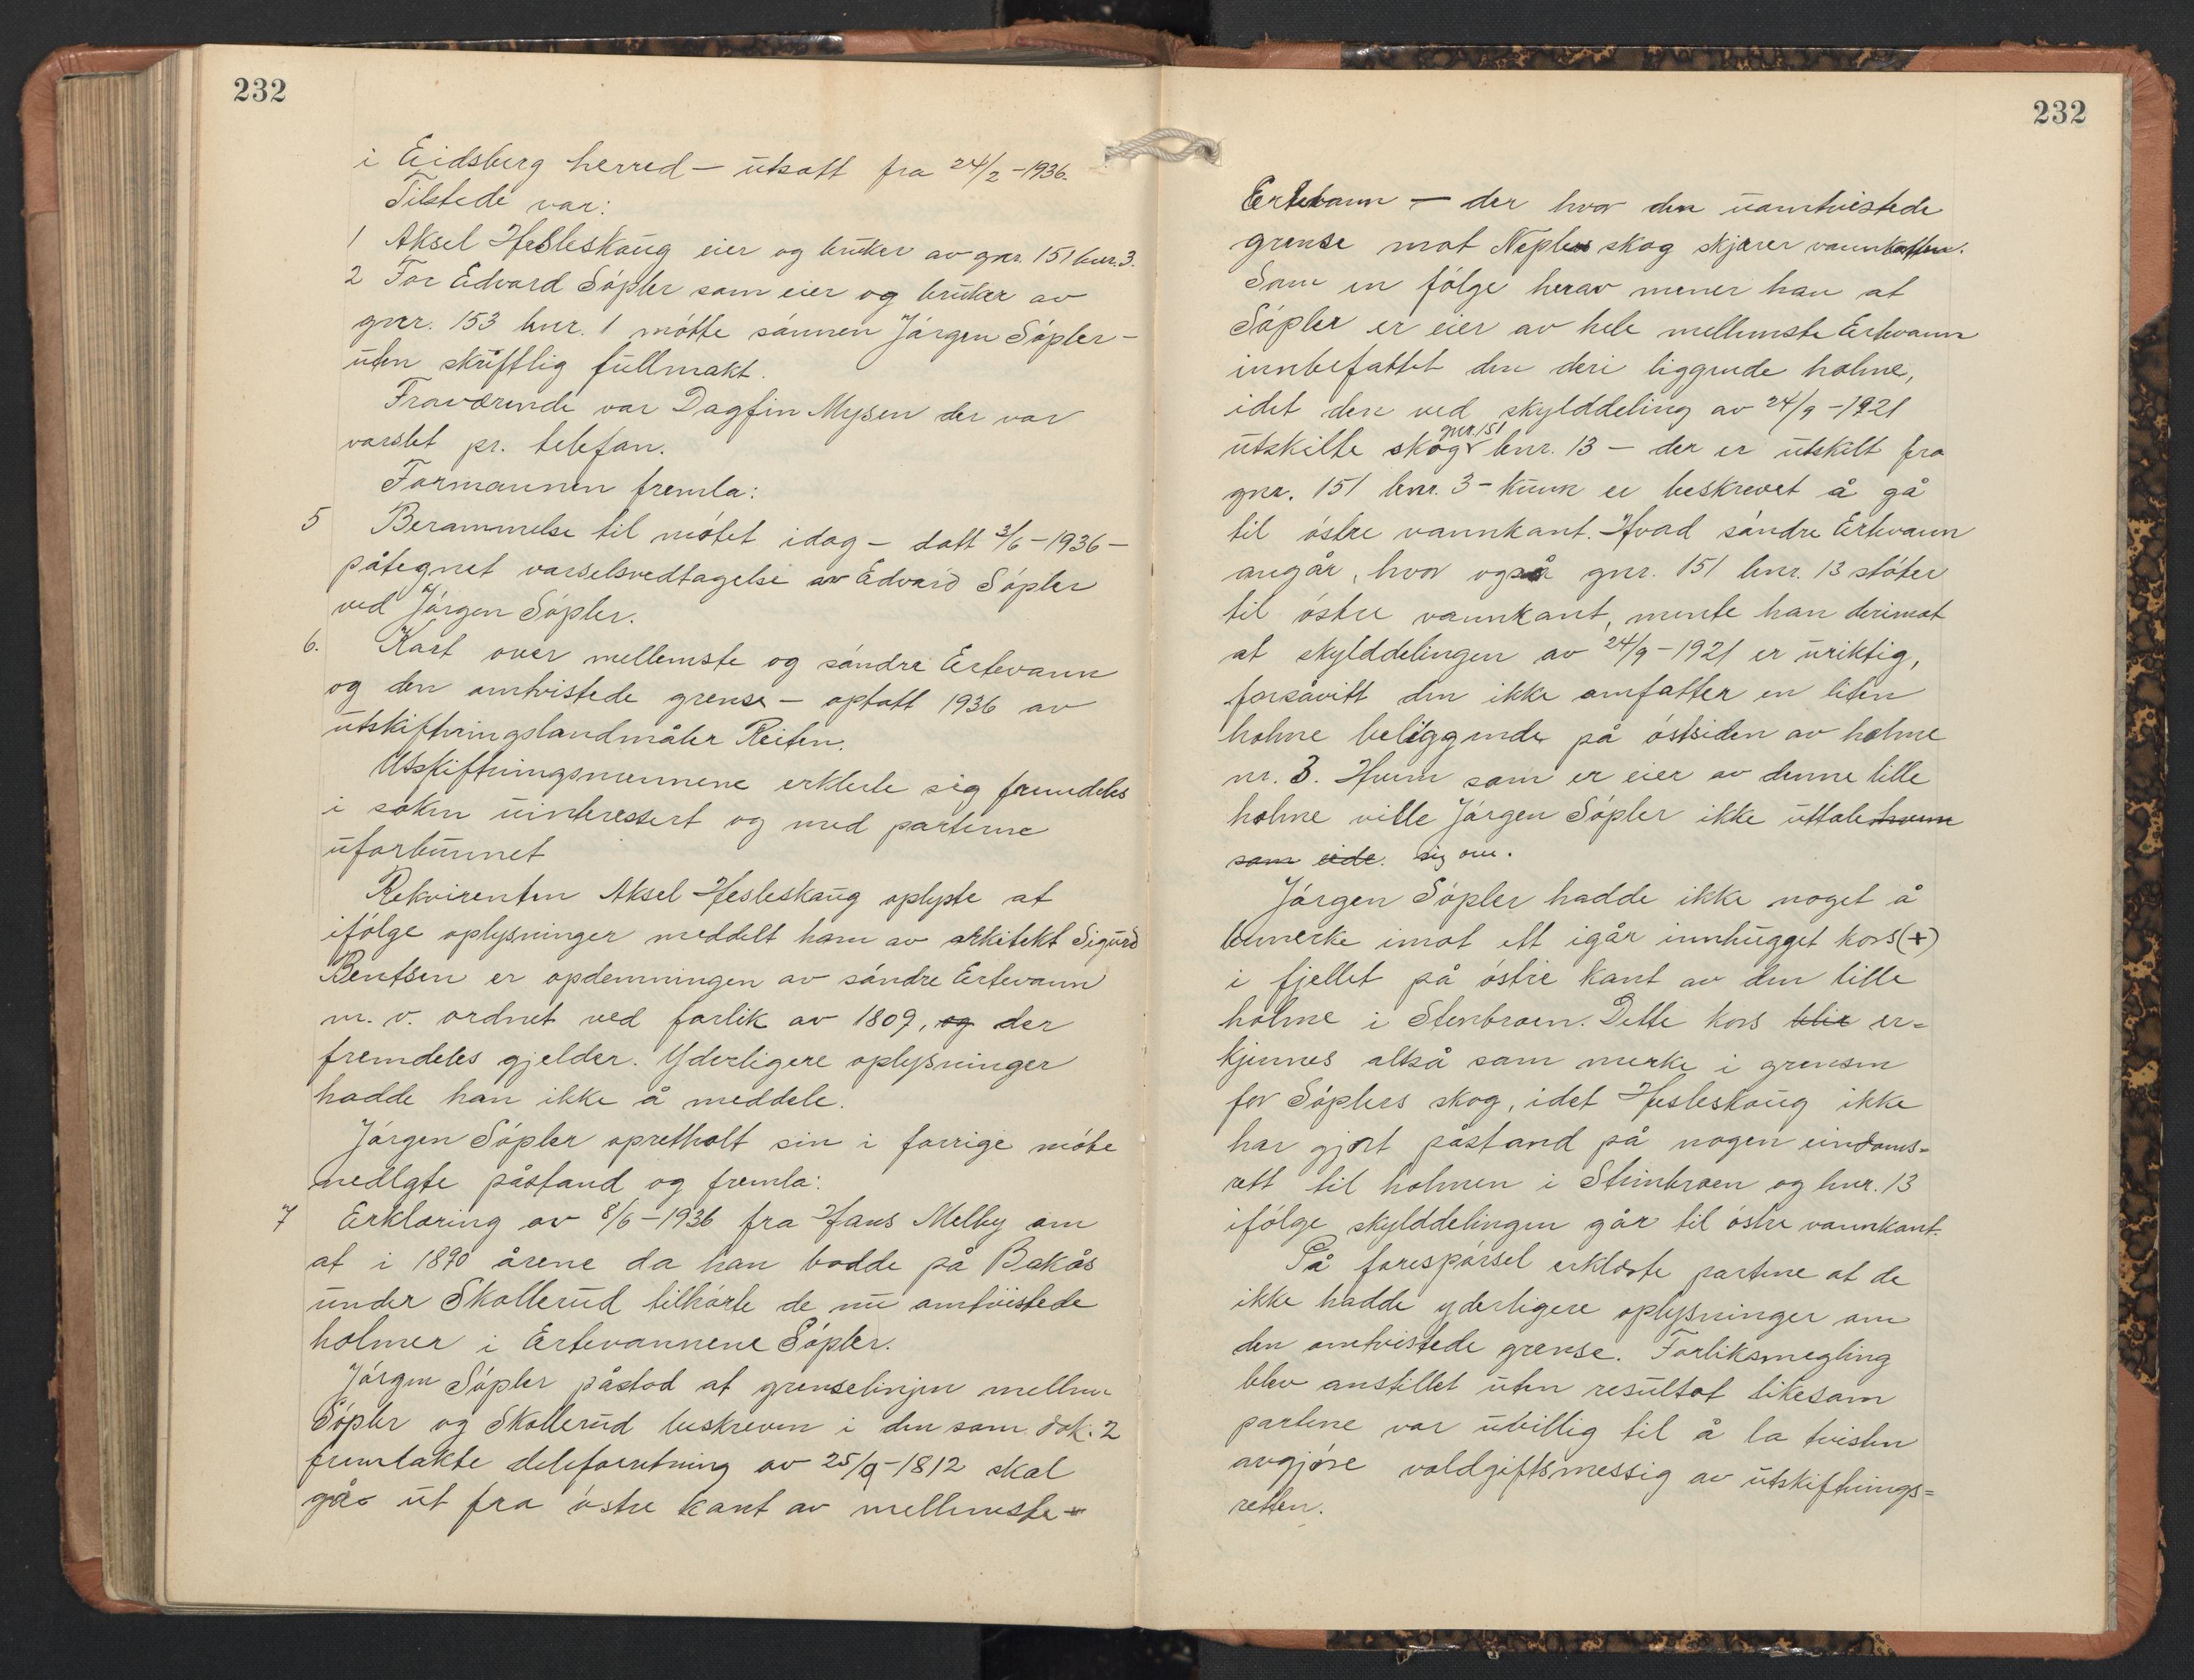 232
i Eidsberg herred – utsatt fra 24/2 – 1936.
Tilstede var:
1 Aksel Hesleskaug eier og bruker av gnr. 151 bnr. 3.
2 For Edvard Söpler som eier og bruker av
gnr. 153 bnr. 1 mötte sönnen Jörgen Söpler –
uten skriftlig fullmakt.
Fraværende var Dagfin Mysen der var
varslet pr. telefon.
Formannen fremla:
5 Berammelse til mötet idag – datt 3/6 – 1936 –
påtegnet varselsvedtagelse av Edvard Söpler
ved Jörgen Söpler.
6. Kart over mellemste og söndre Ertevann
og den omtvistede grense – optatt 1936 av
utskiftningslandmåler Reiten.
Utskiftningsmennene erklerte sig fremdeles
i saken uinteressert og med parterne
uforbunnet
Rekvirenten Aksel Hesleskaug oplyste at
ifölge oplysninger meddelt ham av arkitekt Sigurd
Bentsen er opdemningen av söndre Ertevann
m. v. ordnet ved forlik av 1809, og der
fremdeles gjelder. Yderligere oplysninger
hadde han ikke å meddele.
Jörgen Söpler opretholt sin i forrige möte
nedlagte påstand og fremla:
7 Erklæring av 8/6 – 1936 fra Hans Melby om
at i 1890 årene da han bodde på Bakås
under Skallerud tilhörte de nu omtvistede
holmer i Ertevannene Söpler.
Jörgen Söpler påstod at grenselinjen mellem
Söpler og Skallerud beskreven i den som dok. 2
fremlakte deleforretning av 25/9 – 1812 skal
gå ut fra östre kant av mellemste –
232
Ertevann – der hvor den uomtvistede
grense mot Neplus skog skjærer vannkatten.
Som en fölge herav mener han at
Söpler er eier av hele mellemste Ertevann
innbefattet den deri liggende holme,
idet den ved skylddeling av 24/9 – 1921
utskilte skog gnr. 151 bnr. 13 – der er utskilt fra
gnr. 151 bnr. 3 – kunn er beskrevet å gå
til östre vannkant. Hvad söndre Ertevann
angår, hvor også gnr. 151 bnr. 13 stöter
til östre vannkant, mente han derimot
at skylddelingen av 24/9 – 1921 er uriktig,
forsåvitt den ikke omfatter en liten
holme beliggende på östsiden av holme
nr. 3. Hvem som er eier av denne lille
holme ville Jörgen Söpler ikke uttale hvem
som eide. sig om.
Jörgen Söpler hadde ikke noget å
bemerke imot ett igår innhugget kors (+)
i fjellet på östre kant av den lille
holme i Stenbroen. Dette kors blir er=
kjennes altså som merke i grensen
for Söplers skog, idet Hesleskaug ikke
har gjort påstand på nogen eindoms=
rett til holmen i Steinbroen og bnr. 13
ifölge skylddelingen går til östre vannkant.
På forespörsel erklærte partene at de
ikke hadde yderligere oplysninger om
den omtvistede grense. Forliksmegling
blev anstillet uten resultat likesom
partene var uvillig til å la tvisten
avgjöre voldgiftsmessig av utskiftnings=
retten.